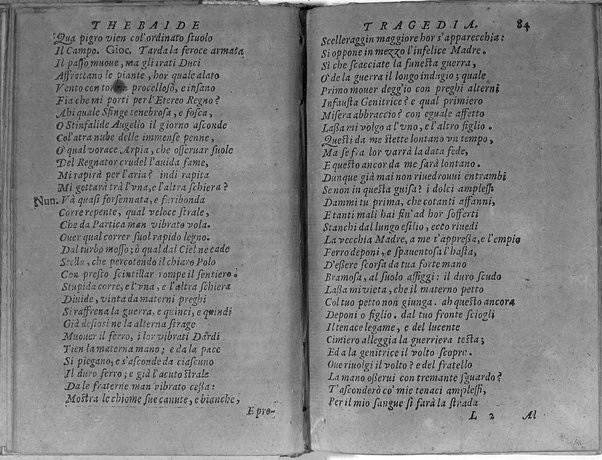 THEBAIDE
Qua pigro vien col'ordinato stuolo
Il Campo. Gioc. Tarda la feroce armata
Il passo muoue, ma gli irati Duci
Affrettano le piante, hor quale alato
Vento con torbin procelloso, e insano
Fia che mi porti per l'Etereo Regno?
Ahi quale Sfinge tenebrosa, e fosca,
O Stinfalide Augello il giorno asconde
Col'atra nube delle immense penne,
O qual vorace Arpia, che osseruar suole
Del Regnator crudel l'auida fame,
Mi rapirà per l'aria? indi rapita
Mi gettarà trà l'vna, e l'altra schiera?
Nun. Và quasi forsennata, e furibonda
Corre repente, qual veloce strale,
Che da Partica man vibrato vola.
Ouer qual correr suol rapido legno.
Dal turbo mosso; ò qual dal Ciel ne cade
Stella, che percotendo il chiaro Polo
Con presto scintillar rompe il sentiero.
Stupida corre, e l'vna, e l'altra schiera
Diuide, vinta da materni preghi
Si raffrena la guerra, e quinci, e quindi
Già desiosi ne la alterna strage
Muouer il ferro, i lor vibrati Dardi
Tien la materna mano; e da la pace
Si piegano, e s'asconde da ciascuno
Il duro ferro; e già l'acuto strale
Da le fraterne man vibrato cessa:
Mostra le chiome sue canute, e bianche,
E pre-
TRAGEDIA. 84
Scelleraggin maggiore hor s'apparecchia:
Si oppone in mezzo l'infelice Madre.
Sì che scacciate la funesta guerra,
O' de la guerra il longo indugio; quale
Primo mouer degg'io con preghi alterni
Infausta Genitrice? e qual primiero
Misera abbraccio? con eguale affetto
Lassa mi volgo a l'vno, e l'altro figlio.
Questi da me stette lontano vn tempo,
Ma se fia lor varrà la data fede,
E questo ancor da me sarà lontano.
Dunque già mai non riuedroui entrambi
Se non in questa guisa? i dolci amplessi
Dammi tu prima, che cotanti affanni,
E tanti mali hai fin'ad hor sofferti
Stanchi dal lungo esilio, ecto riuedi
La vecchia Madre, a me t'appressa, e l'empio
Ferro deponi, e spauentosa l'hasta,
D'essere scorsa da tua forte mano
Bramosa, al suolo affiggi: il duro scudo
Lassa mi vieta, che il materno petto
Col tuo petto non giunga. ah questo ancora
Deponi o figlio. dal tuo fronte sciogli
Il tenace legame, e del lucente
Cimiero alleggia la guerriera testa;
Ed a la genitrice il volto scopre.
Oue riuolgi il volto? e del fratello
La mano osserui con tremante sguardo?
T'asconderò co' mie tenaci amplessi,
Per il mio sangue si farà la strada
L 2 Al